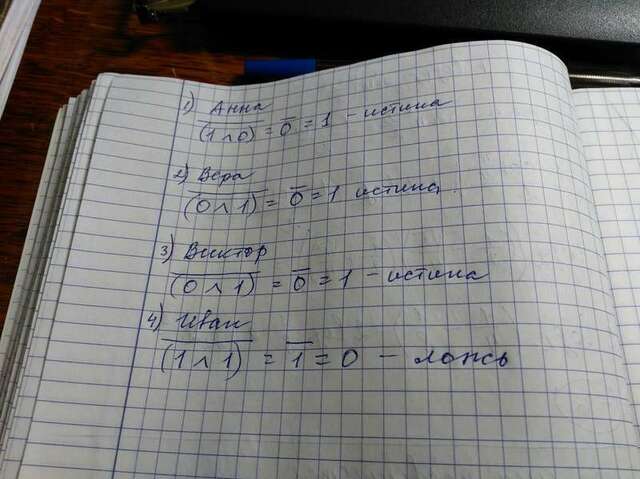 1) Анна
(1 ∧ 0) = 0̅ = 1 - истина
2) Вера
(0 ∧ 1) = 0̅ = 1 истина.
3) Виктор
(0 ∧ 1) = 0̅ = 1 - истина
4) Иван
(1 ∧ 1) = 1̅ = 0 - ложь